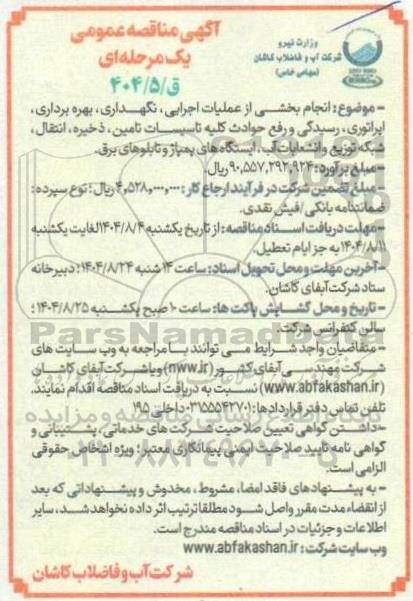 آگهی مناقصه عمومی
یک مرحله‌ای
ق/۴۰۴/۵
وزارت نیرو
شرکت آب و فاضلاب کاشان
(سهامی خاص)
- موضوع: انجام بخشی از عملیات اجرایی، نگهداری، بهره برداری،
اپراتوری، رسیدگی و رفع حوادث کلیه تاسیسات تامین، ذخیره، انتقال،
شبکه توزیع و انشعابات آب، ایستگاه‌های پمپاژ و تابلوهای برق.
- مبلغ برآورد: ۹۰,۵۵۷,۲۹۲,۹۲۴ ریال.
- مبلغ تضمین شرکت در فرآیند ارجاع کار: ۴,۵۲۸,۰۰۰,۰۰۰ ریال؛ نوع سپرده:
ضمانتنامه بانکی/فیش نقدی.
- مهلت دریافت اسناد مناقصه: از تاریخ یکشنبه ۱۴۰۴/۸/۴ لغایت یکشنبه
۱۴۰۴/۸/۱۱ به جز ایام تعطیل.
- آخرین مهلت و محل تحویل اسناد: ساعت ۱۴ شنبه ۱۴۰۴/۸/۲۴؛ دبیرخانه
ستاد شرکت آبفای کاشان.
- تاریخ و محل گشایش پاکت ها: ساعت ۱۰ صبح یکشنبه ۱۴۰۴/۸/۲۵؛
سالن کنفرانس شرکت.
- متقاضیان واجد شرایط می توانند با مراجعه به وب سایت های
شرکت مهندسی آبفای کشور (nww.ir) و یا شرکت آبفای کاشان
(www.abfakashan.ir) نسبت به دریافت اسناد مناقصه اقدام نمایند.
تلفن تماس دفتر قراردادها: ۰۳۱۵۵۵۴۳۷۰۱ داخلی ۱۹۵
- داشتن گواهی تعیین صلاحیت شرکت‌های خدماتی، پشتیبانی و
گواهی نامه تایید صلاحیت ایمنی پیمانکاری معتبر؛ ویژه اشخاص حقوقی
الزامی است.
- به پیشنهادهای فاقد امضا، مشروط، مخدوش و پیشنهاداتی که بعد
از انقضاء مدت مقرر واصل شود مطلقا ترتیب اثر داده نخواهد شد، سایر
اطلاعات و جزئیات در اسناد مناقصه مندرج است.
وب سایت شرکت: www.abfakashan.ir
شرکت آب و فاضلاب کاشان
ParsNamadData